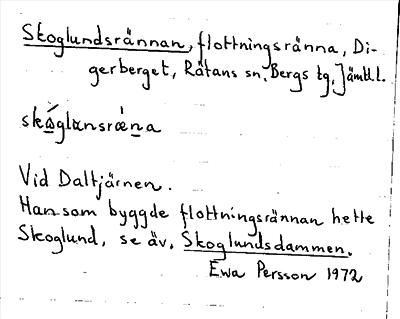 Skoglundsrännan, flottningsränna, Di-
gerberget, Rätans sn, Bergs tg, Jämtl.l.
skώ̲glɯnsrǽn̲a
Vid Daltjärnen.
Han som byggde flottningsrännan hette
Skoglund, se äv. Skoglundsdammen.
Ewa Persson 1972